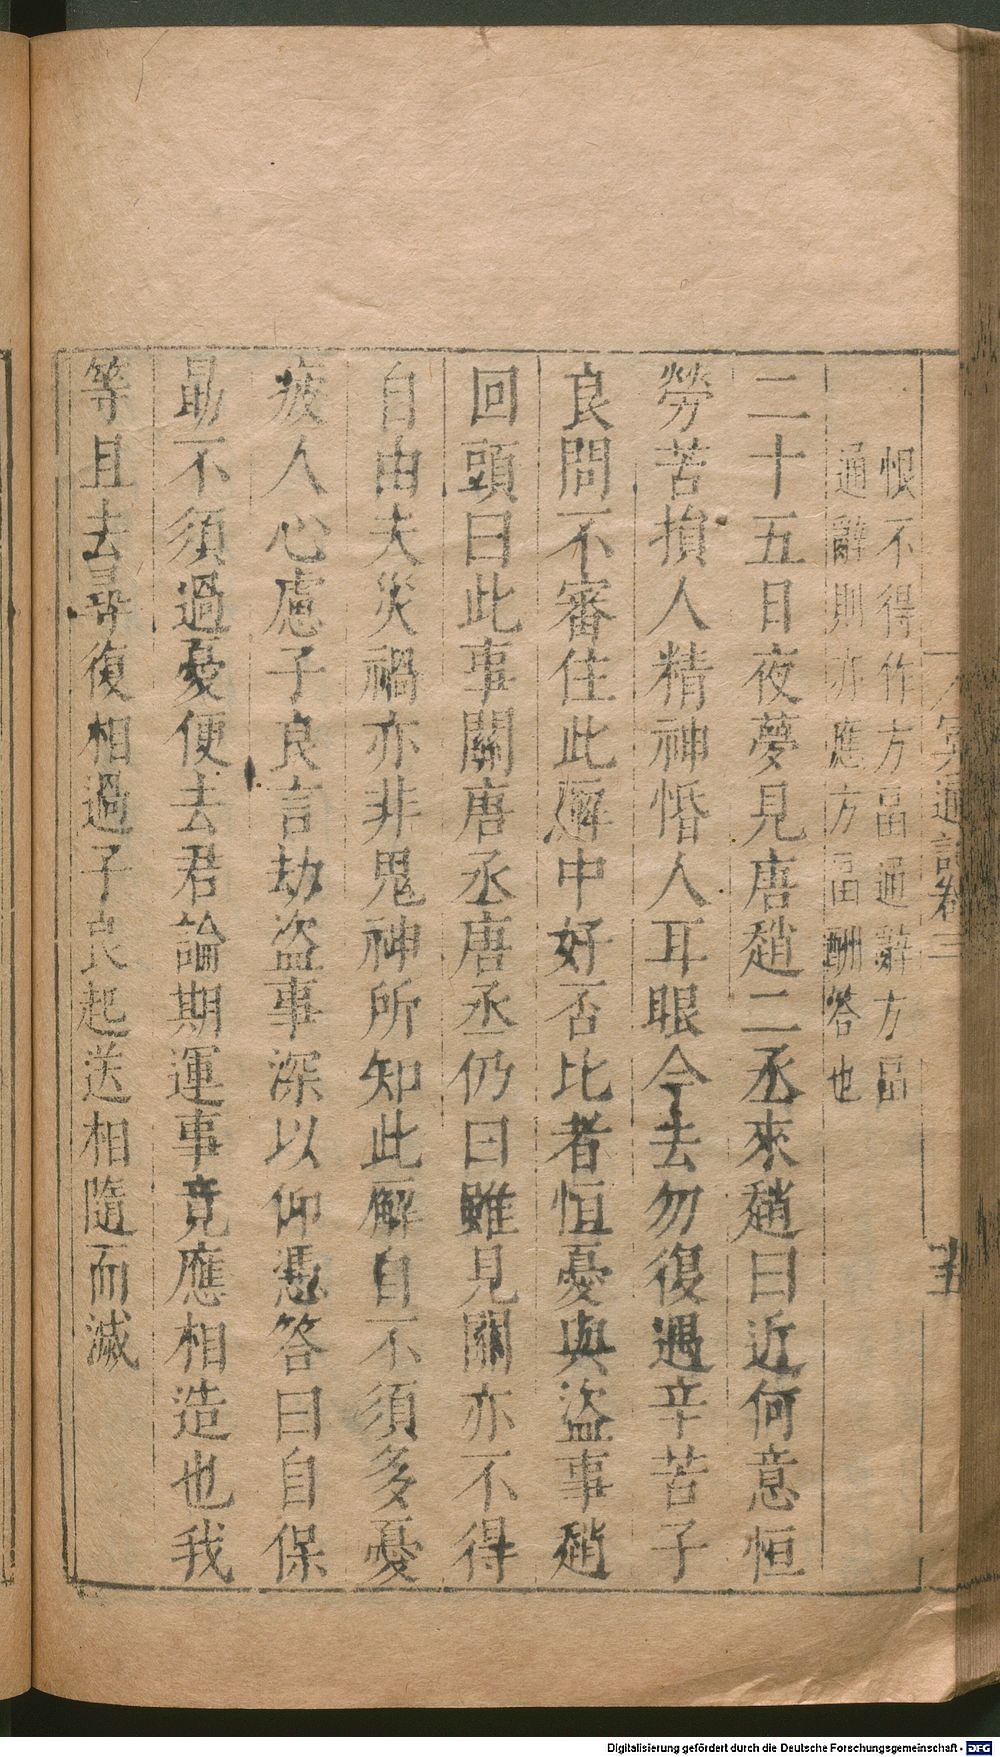 恨不得作方畐通辭方畐
通辭則亦應方畐酬答也
二十五日夜夢見唐趙二丞來趙曰近何意恒
勞苦損人精神惛人耳眼今去勿復過辛苦子
良問不審住此廨中好否比者恒憂與盜事趙
回頭曰此事關唐丞唐丞仍曰雖見關亦不得
自由夫災禍亦非鬼神所知此廨自不須多憂
疲人心慮子良言劫盜事深以仰憑答曰自保
勖不須過憂便去君論期運事竟應相造也我
等且去尋復相過子良起送相隨而滅
冥通記卷三
Digitalisierung gefördert durch die Deutsche Forschungsgemeinschaft - DFG